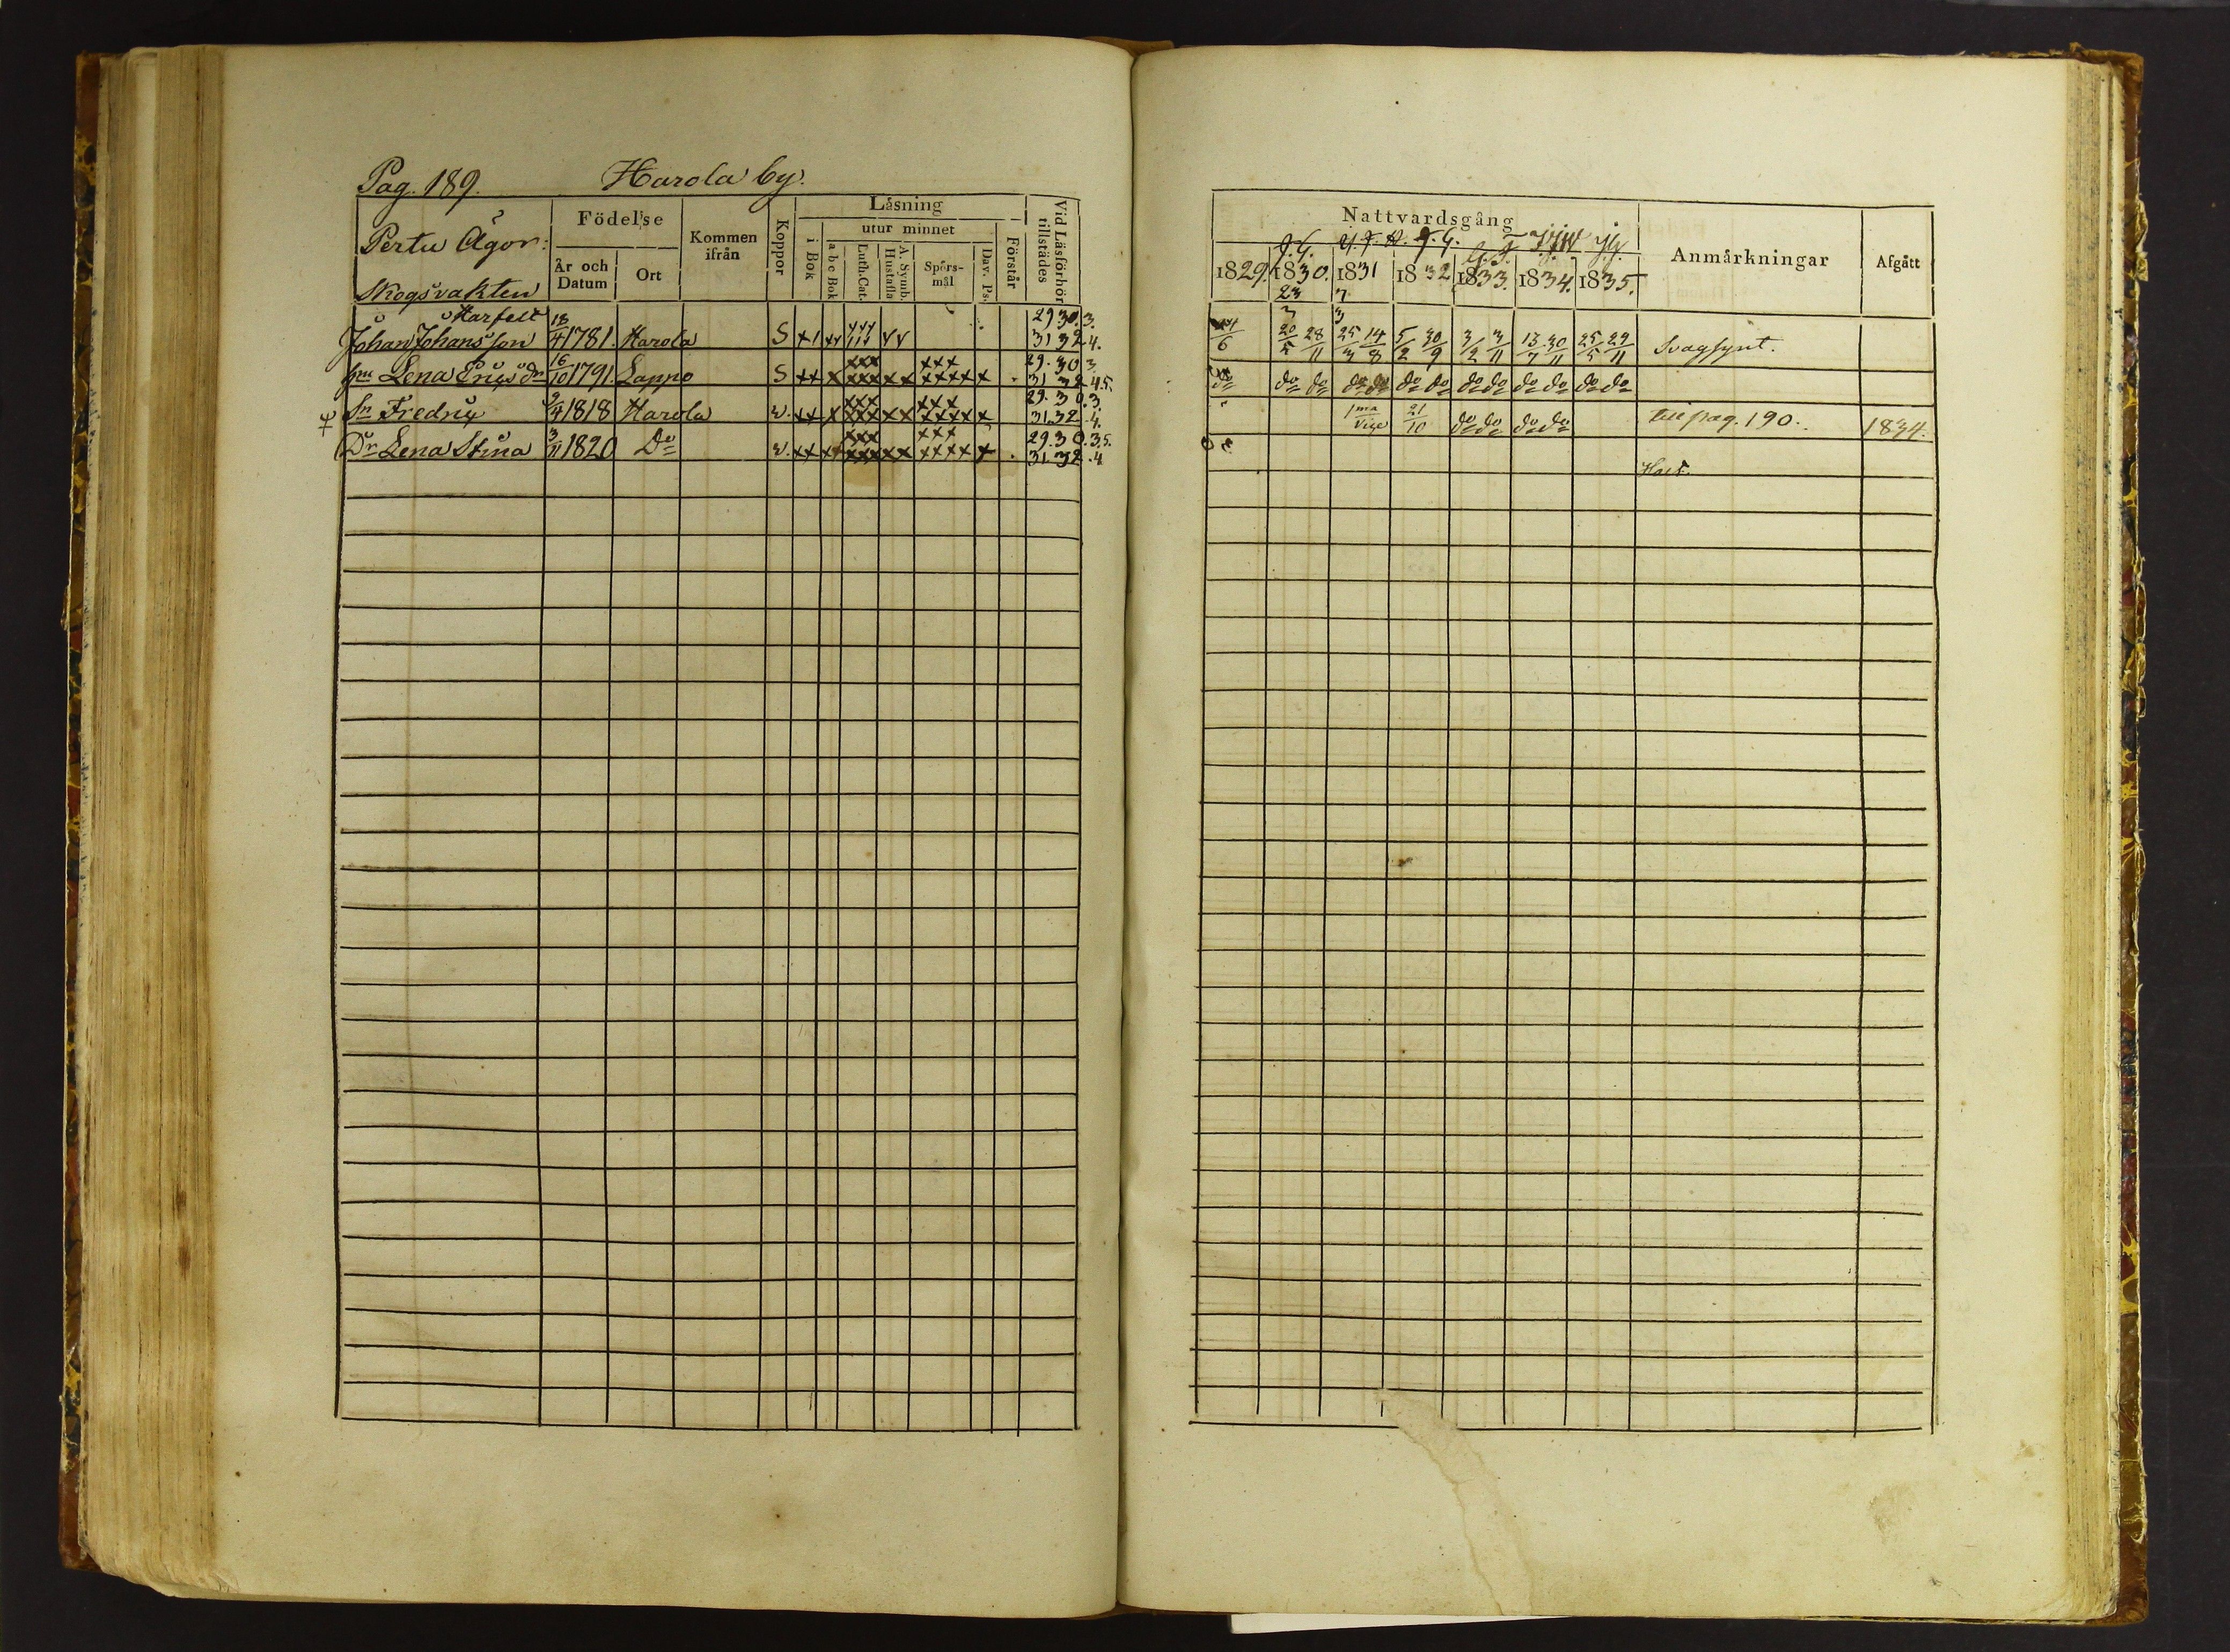 Pag. 189. Harola by.
Pertu Ägor.
Skogsvakten
Födelse
År och Datum
Ort
Kommen ifrån
Koppor
Läsning
i Bok
utur minnet
a b c Bok
Luth. Cat.
A. Symb. Hustafla
Spörsmål
Dav. Ps.
Förstår
Vid Läsförhör tillstädes
Harfelt
Johan Johansson 18/4 1781. Harola S 29 30. 3. 31 32 4.
Lena 16/10 1791. Lappo S 29. 30 3 31 32 4 5.
Sn Fredric 9/4 1818 Harola v. 29. 30. 3 31. 32 4.
Dr Lena Stina 3/11 1820 Do v. 29. 30. 3 5. 31 32. 4
Nattvardsgång
1829. 1830. 1831 1832 1833. 1834. 1835.
Anmärkningar
Afgått
23 7
3 3
6 20/5 28/11 25/3 14/8 5/2 30/9 3/2 3/11 13/7 30/11 25/5 29/11 Svagsynt.
do do do do do do do do do do do do do
1ma Vice 21/10 do do do do till pag. 190. 1834.
Halt.